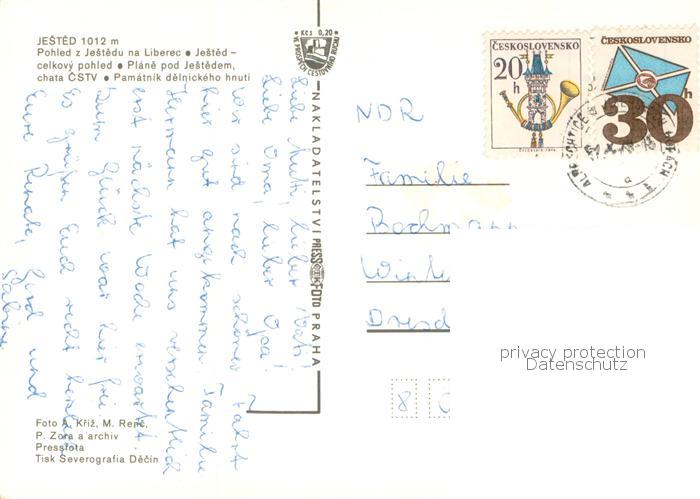 JEŠTĚD 1012 m
Pohled z Ještědu na Liberec ● Ještěd –
celkový pohled ● Pláně pod Ještědem,
chata ČSTV ● Památník dělnického hnutí
Kčs 0,20
VE PROSPĚCH CESTOVNÍHO RUCHU
NAKLADATELSTVÍ PRESSFOTO PRAHA
ČESKOSLOVENSKO
20 h
ČESKOSLOVENSKO
30 h
Liebe Mutti, lieber Vati!
Liebe Oma, lieber Opa!
Wir sind nach schöner Fahrt
hier gut angekommen. Familie
Hermann hat uns versehentlich
erst nächste Woche erwartet.
Zum Glück war hier frei.
Es grüßen Euch recht herzlich
Eure Renate, Gerd und
Sabine
NDR
Familie
Bochmann
Dresd
8
privacy protection
Datenschutz
Foto A. Kříž, M. Renč,
P. Zora a archiv
Pressfota
Tisk Severografia Děčín